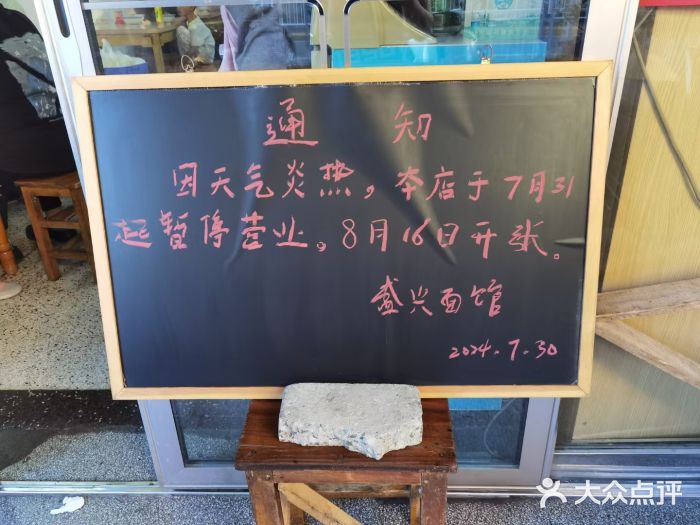 通知
因天气炎热，本店于7月31
起暂停营业。8月16日开张。
盛兴面馆
2024.7.30
大众点评